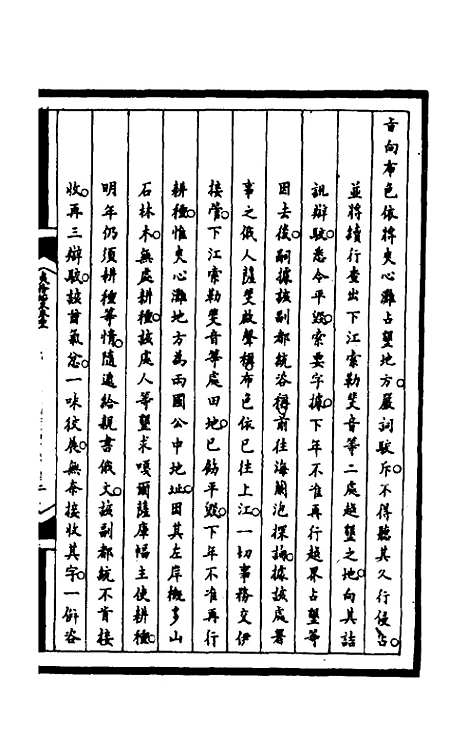 音向布色依將夾心灘占墾地方嚴詞駁斥不得聽其久行侵占
並將續行查出下江索勒斐音等二處越墾之地向其詰
訊辯駁悉令平毀索要字據下年不准再行越界占墾等
因去後嗣據該副都統咨稱前往海蘭泡探詢據該處署
事之俄人薩斐啟聲稱布色依已往上江一切事務交伊
接管下江索勒斐音等處田地已飭平毀下年不准再行
耕種惟夾心灘地方為兩國公中地址因其左岸概多山
石林木無處耕種該處人等墾求嘎爾薩庫幅主使耕種
明年仍須耕種等情隨遞給親書俄文該副都統不肯接
收再三辯駁該酋氣忿一味狡展無奈接收其字一併咨